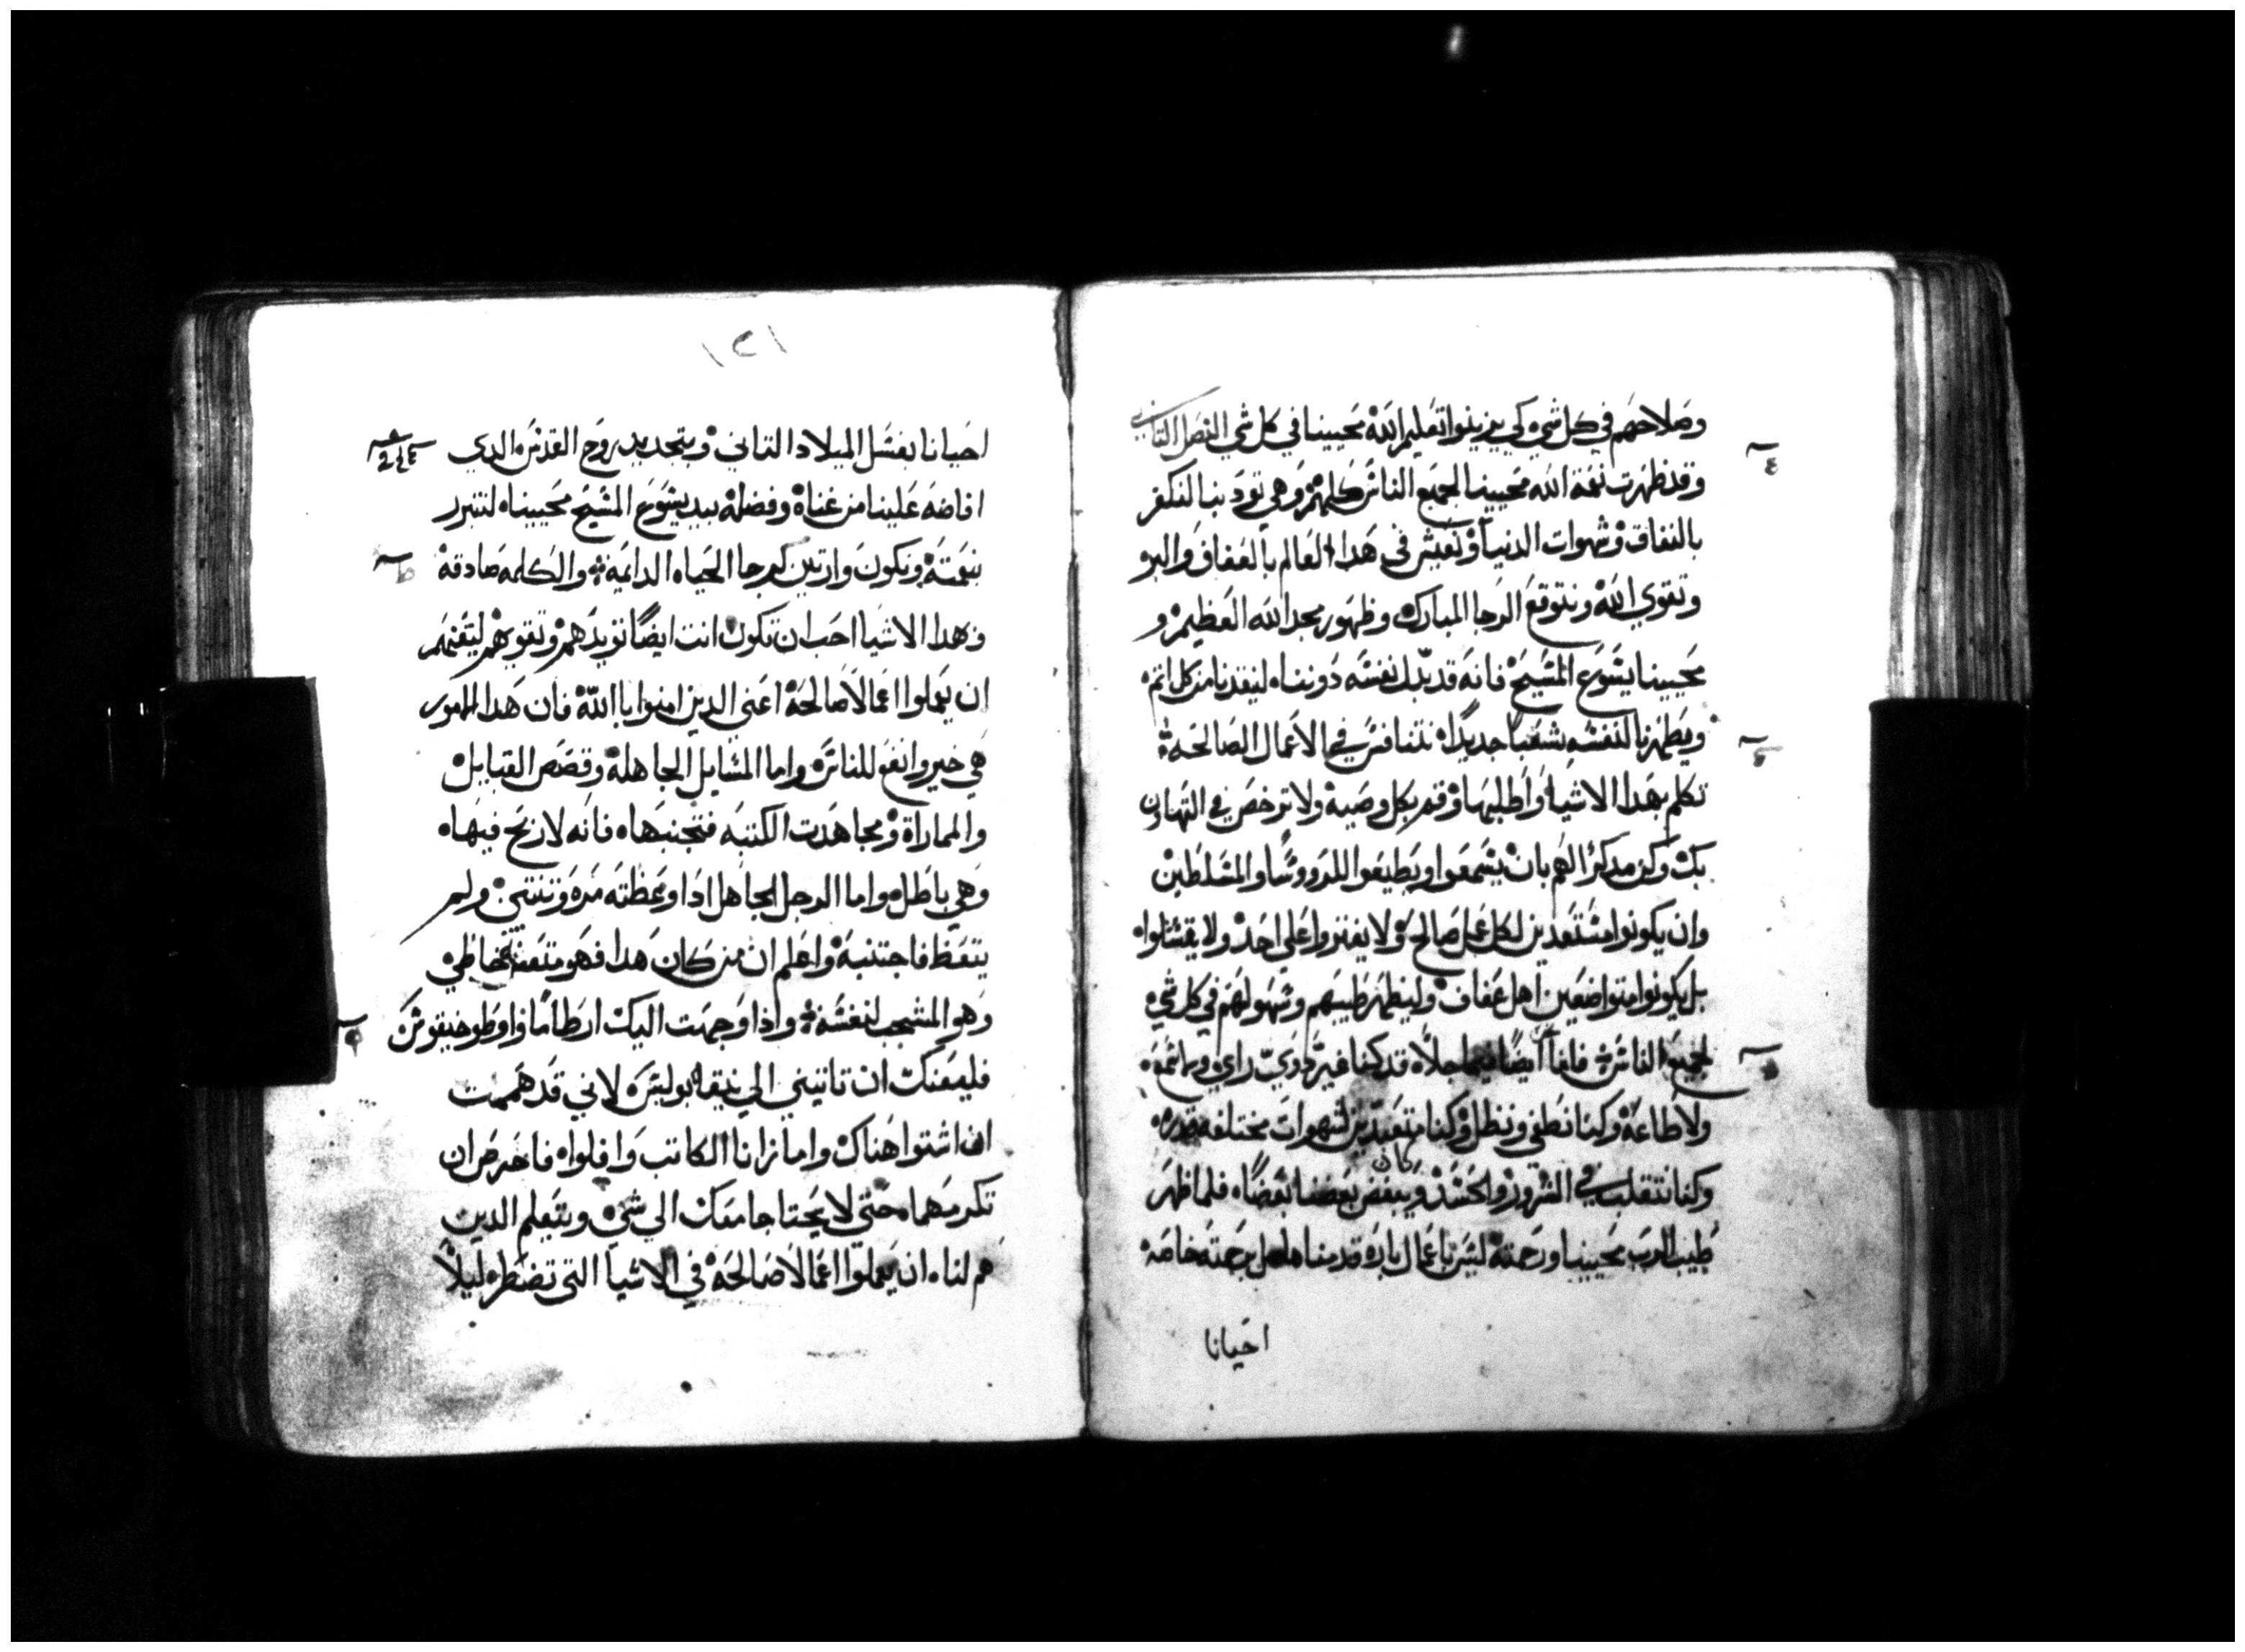 وصلاحهم في كل شي كي يزينوا تعليم الله محيينا في كل شي الفصل التاني
وقد ظهرت نعمة الله محيينا لجميع الناس كلهم وهي تودبنا لنكفر
بالنفاق وشهوات الدنيا ونعيش في هدا العالم بالعفاف والبر
وتقوي الله ونتوقع الرجا المبارك وظهور مجد الله العظيم و
محيينا يشوع المسيح فانه قد بدل نفسه دوننا لينقدنا من كل اتم
ويطهرنا لنفسه شعبا جديدا نتنافس في الاعمال الصالحة
تكلم بهدا الاشيا واطلبها وقم بكل وصية ولا ترخص في التهاون
بك وكن مدكرا لهم بان يسمعوا ويطيعوا للرووسا والمسلطين
وان يكونوا مستعدين لكل عمل صالح ولا يفتروا علي احد ولا يقتتلوا
بل يكونوا متواضعين اهل عفاف وليظهر طيبهم وسهولهم في كل شي
لجميع الناس فانا ايضا كنا قد كنا غير دوي راي ولا سمع
ولا طاعة وكنا نطغي ونظل وكنا متعبدين لشهوات مختلفة
وكنا نتقلب في الشرور والحسد وكان يبغض بعضنا بعضا فلما ظهر
طيب الرب محيينا ورحمته ليس باعمال بارة قدمناها بل برحمته خاصة
احيانا
١٢١
احيانا بغسل الميلاد التاني وبتجديد روح القدس الدي
افاضه علينا من غناه وفضله بيد يشوع المسيح محيينا لنتبرر
بنعمته ونكون وارتين لرجا الحياه الدايمة والكلمه صادقة
وهدا الاشيا احب ان تكون انت ايضا تويدهم وتقويهم ليهمهم
ان يعملوا اعمالا صالحة اعني الدين امنوا بالله فان هدا الامور
هي خير وانفع للناس واما المسايل الجاهلة وقصص القبايل
والمماراة ومجاهدت الكتبه فتجنبها فانه لا ربح فيها
وهي باطل واما الرجل الجاهل ادا وعظته مره وتنتين ولم
يتعظ فاجتنبه واعلم ان من كان هدا فهو متعفت خاطي
وهو المشجب لنفسه وادا وجهت اليك ارطاما او طوخيقوس
فليعنك ان تاتيني الي نيقابوليس لاني قد هممت
ان اشتوا هناك واما زانا الكاتب وافلوا فاحرص ان
تكرمهما حتي لا يحتاجا معك الي شي ويتعلم الدين
هم لنا ان يعملوا اعمالا صالحة في الاشيا التي تضطر ليلا